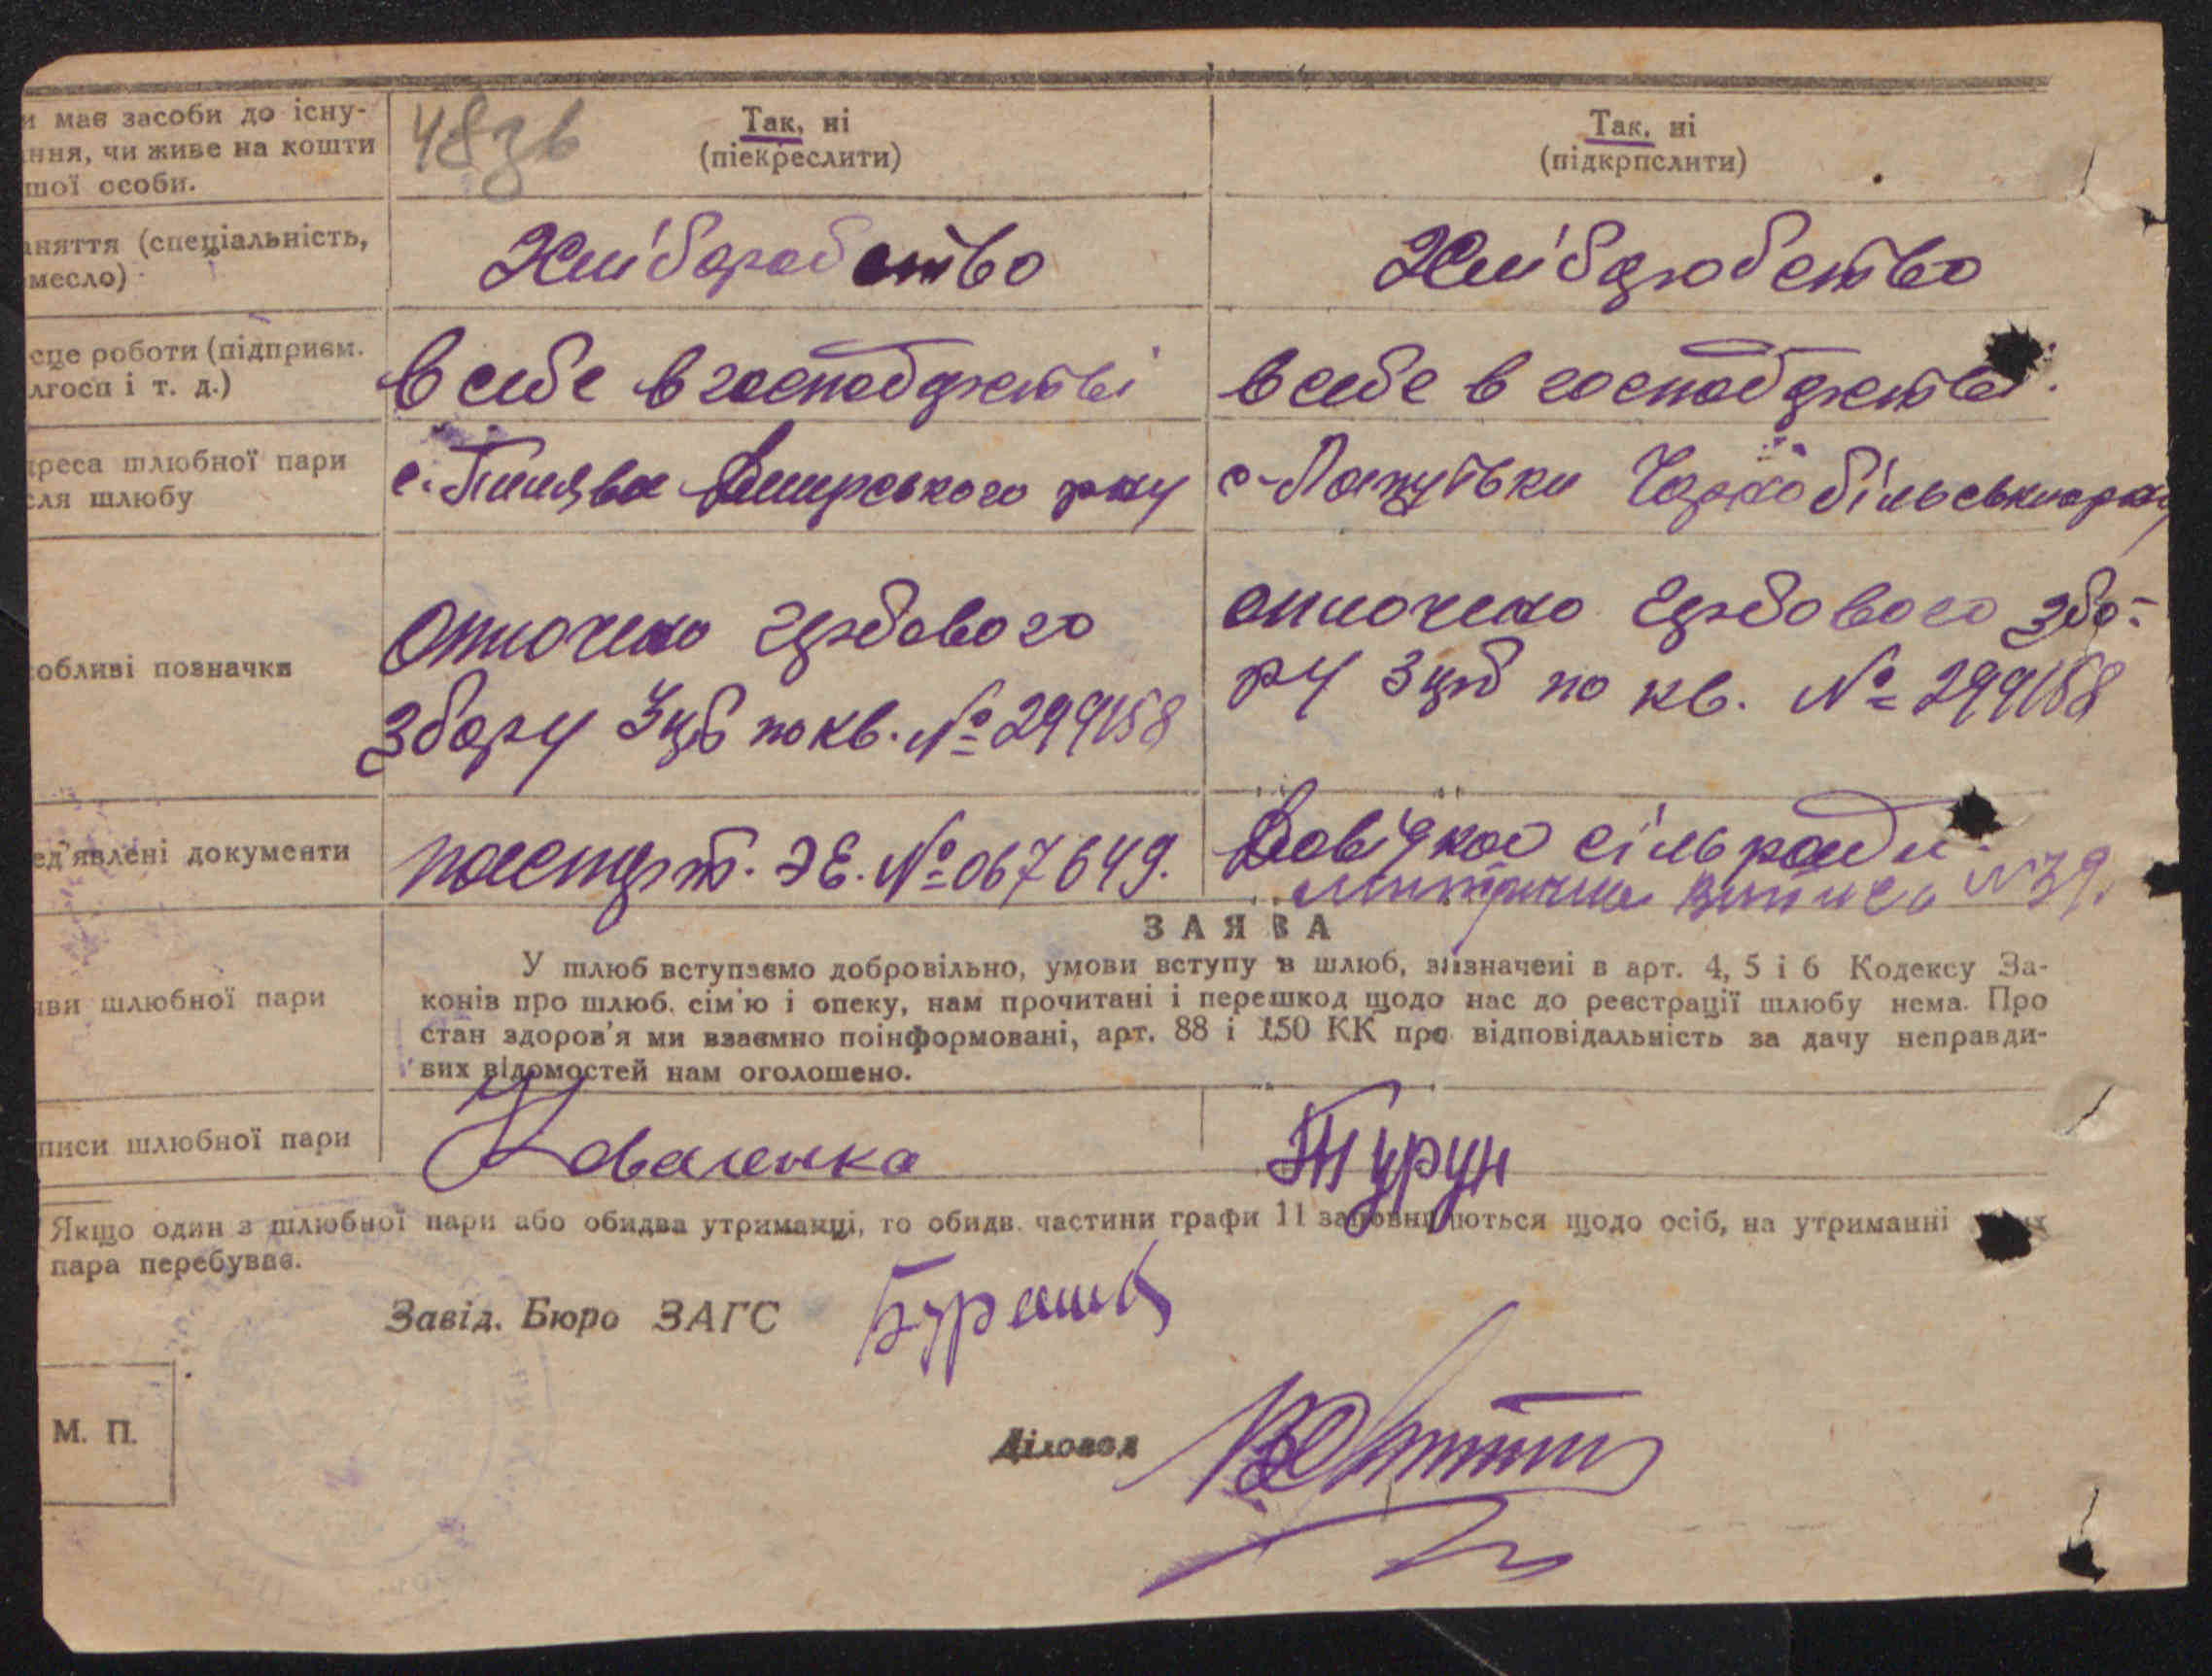 и має засоби до існу-
ння, чи живе на кошти
шої особи.
48зв
Так, ні
(піекреслити)
Так, ні
(підкрпслити)
аняття (спеціальність,
месло)
Хліборобство
Хліборобство
сце роботи (підприєм.
лгосп і т. д.)
в себе в господарстві
в себе в господарстві
дреса шлюбної пари
сля шлюбу
с. р-ну
с. Чорнобільського р-ну
обливі позначки
Оплочено гербового
збору 3 крб по кв. № 299158
оплочено гербового збо-
ру 3 крб по кв. № 299158
ед'явлені документи
паспорт. ЭЕ. № 067649.
Довідкой сільради
метрична №39.
ЗАЯВА
яви шлюбної пари
У шлюб вступаємо добровільно, умови вступу в шлюб, визначені в арт. 4, 5 і 6 Кодексу За-
конів про шлюб. сім'ю і опеку, нам прочитані і перешкод щодо нас до реєстрації шлюбу нема. Про
стан здоров'я ми взаємно поінформовані, арт. 88 і 150 КК про відповідальність за дачу неправди-
вих відомостей нам оголошено.
писи шлюбної пари
Коваленко
Турун
Якщо один з шлюбної пари або обидва утриманці, то обидв. частини графи 11 заповнюються щодо осіб, на утриманні
пара перебуває.
Завід. Бюро ЗАГС
Діловод
М. П.